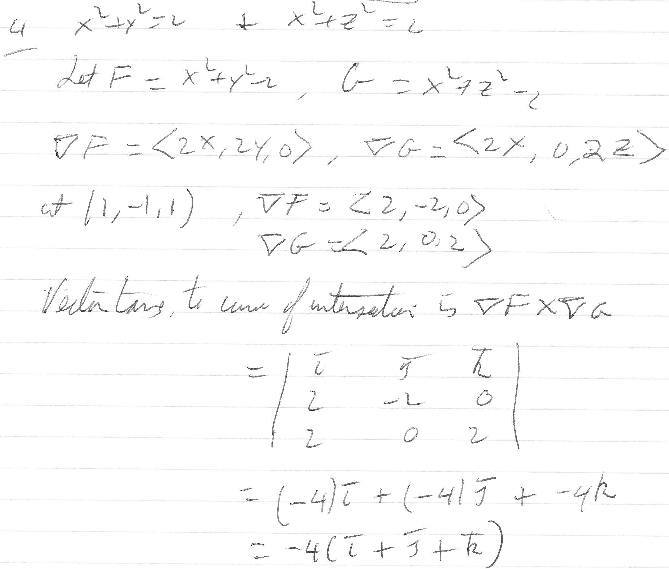 4 x²+y²=2 & x²+z²=2
Let F = x²+y²-2, G = x²+z²-2
∇F = <2x, 2y, 0>, ∇G = <2x, 0, 2z>
at (1, -1, 1), ∇F = <2, -2, 0>
∇G = <2, 0, 2>
Vector tang. to curve of intersection is ∇F×∇G
= | i̅ j̅ k̅ |
| 2 -2 0 |
| 2 0 2 |
= (-4)i̅ + (-4)j̅ + -4k
= -4(i̅ + j̅ + k̅)